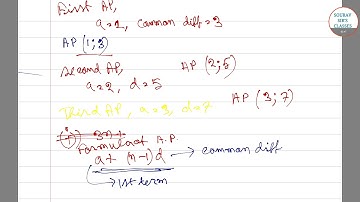 First AP,
a=1, Common diff = 3
AP (1;3)
Second AP,
a=2, d=5
AP (2;5)
Third AP, a=3, d=7
AP (3;7)
Formula of A.P.
a + (n-1)d → common diff
→ 1st term
SOURAV
SIR'S
CLASSES